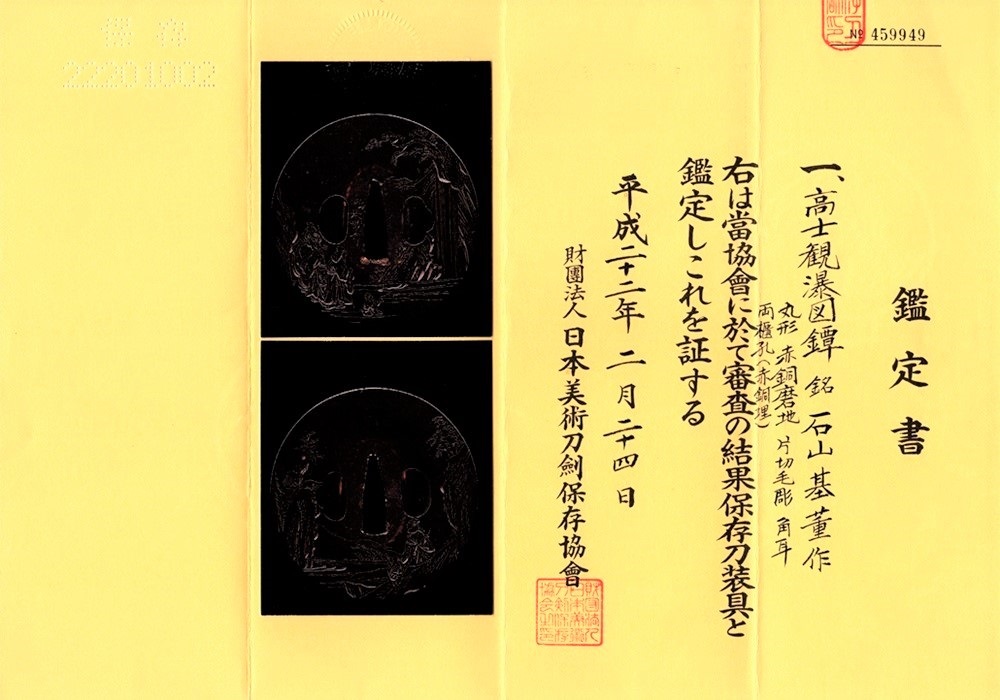 鑑定書
一、高士観瀑図鐔 銘 石山基董作
丸形 赤銅磨地 片切毛彫 角耳
両櫃孔(赤銅埋)
右は當協會に於て審査の結果保存刀装具と
鑑定しこれを証する
平成二十二年 二月二十四日
財團法人 日本美術刀劍保存協會
№ 459949
保存
22201002